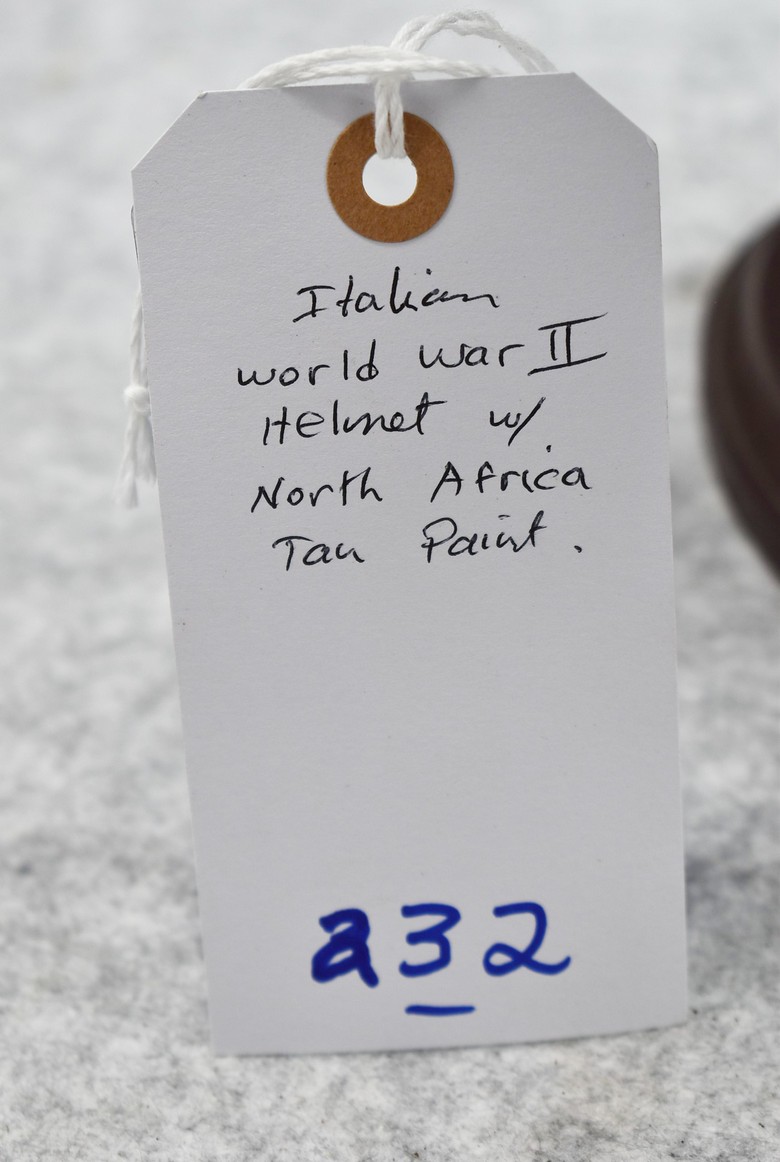 Italian
world war II
Helmet w/
North Africa
Tan Paint.
232